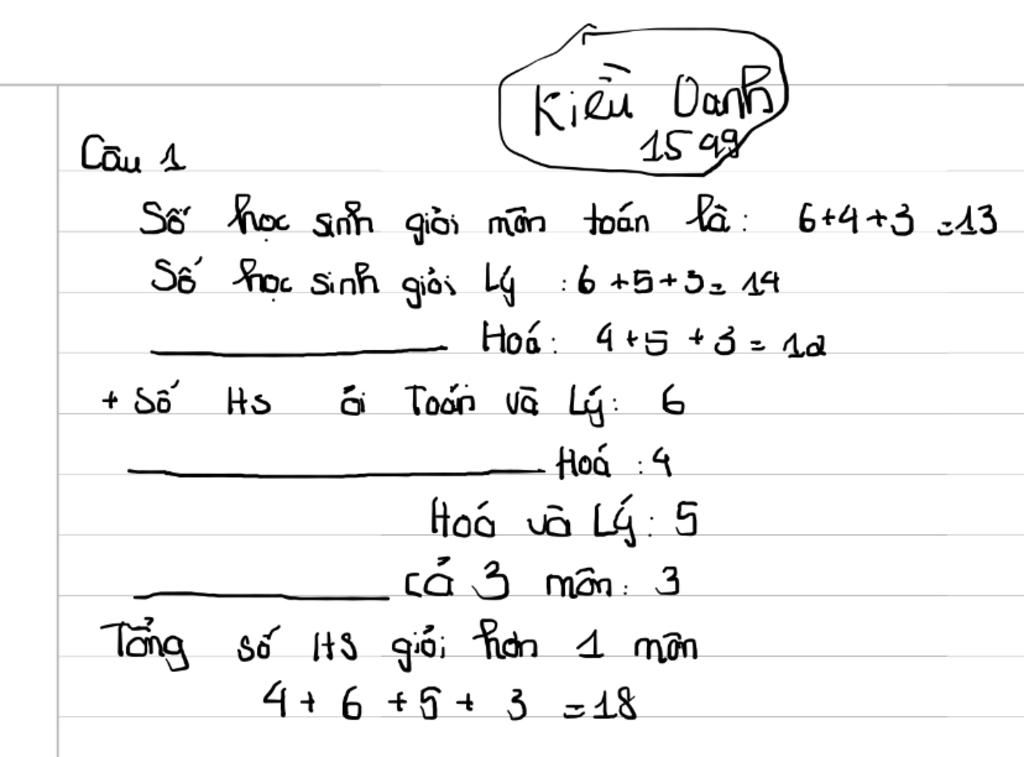 Kiều Oanh
1599
Câu 1
Số học sinh giỏi môn toán là: 6+4+3=13
Số học sinh giỏi Lý: 6+5+3=14
Hoá: 4+5+3=12
+ Số HS ỏi Toán và Lý: 6
Hoá: 4
Hoá và Lý: 5
cả 3 môn: 3
Tổng số HS giỏi hơn 1 môn
4+6+5+3=18